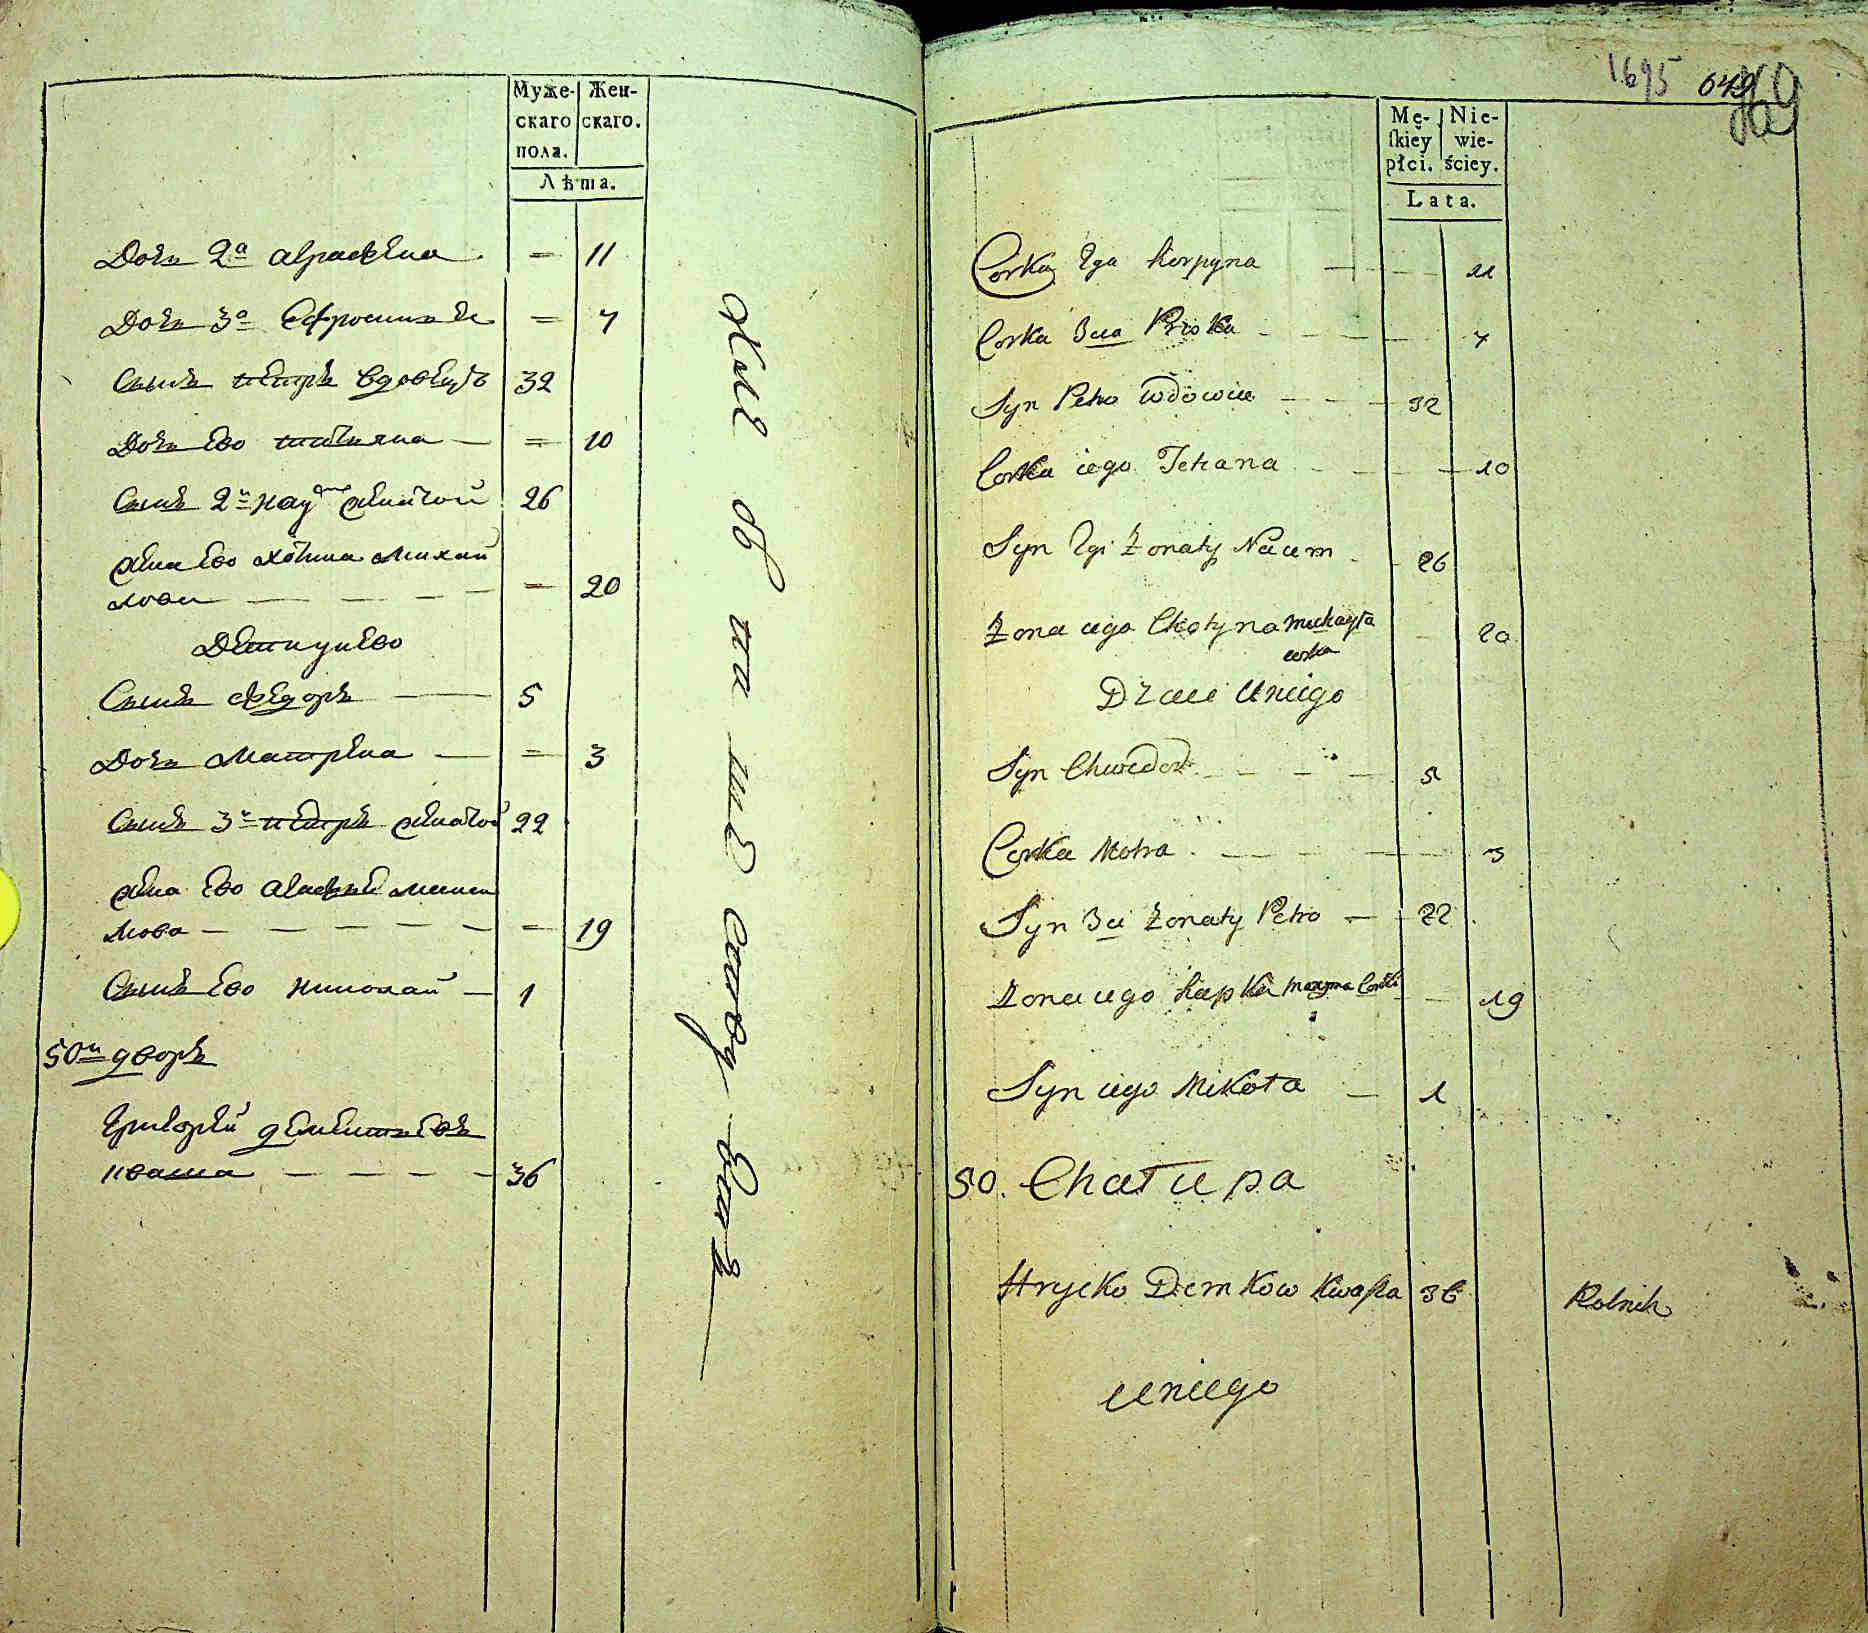 Муже-
скаго
пола.
Жен-
скаго.
Лѣта.
Дочь 2я 11
Дочь 3я 7
Сынъ петръ вдовецъ 32
Дочь ево татьяна 10
Сынъ 2й женатой 26
жена ево хотина михай
лова 20
Дети у нево
Сынъ федоръ 5
Дочь матрена 3
Сынъ 3й петръ женатой 22
жена ево
мова 19
Сынъ ево николай 1
50й дворъ
Григорей дементьевъ
кваша 36
1695
649
Mę-
ſkiey
płci.
Nie-
wie-
ściey.
Lata.
Corka 2ga Horpyna 11
Corka 3cia 7
Syn Petro wdowiec 32
Corka iego Tetiana 10
Syn 2gi Żonaty Naum 26
Żona iego Chotyna Michayła
corka 20
Dzieci Uniego
Syn Chwedor 5
Corka Motra 3
Syn 3ci Żonaty Petro 22
Żona iego Hapka Maxyma Corka 19
Syn iego Mikoła 1
50. Chałupa
Hrycko Demkow Kwaſza 36 Rolnik
Uniego